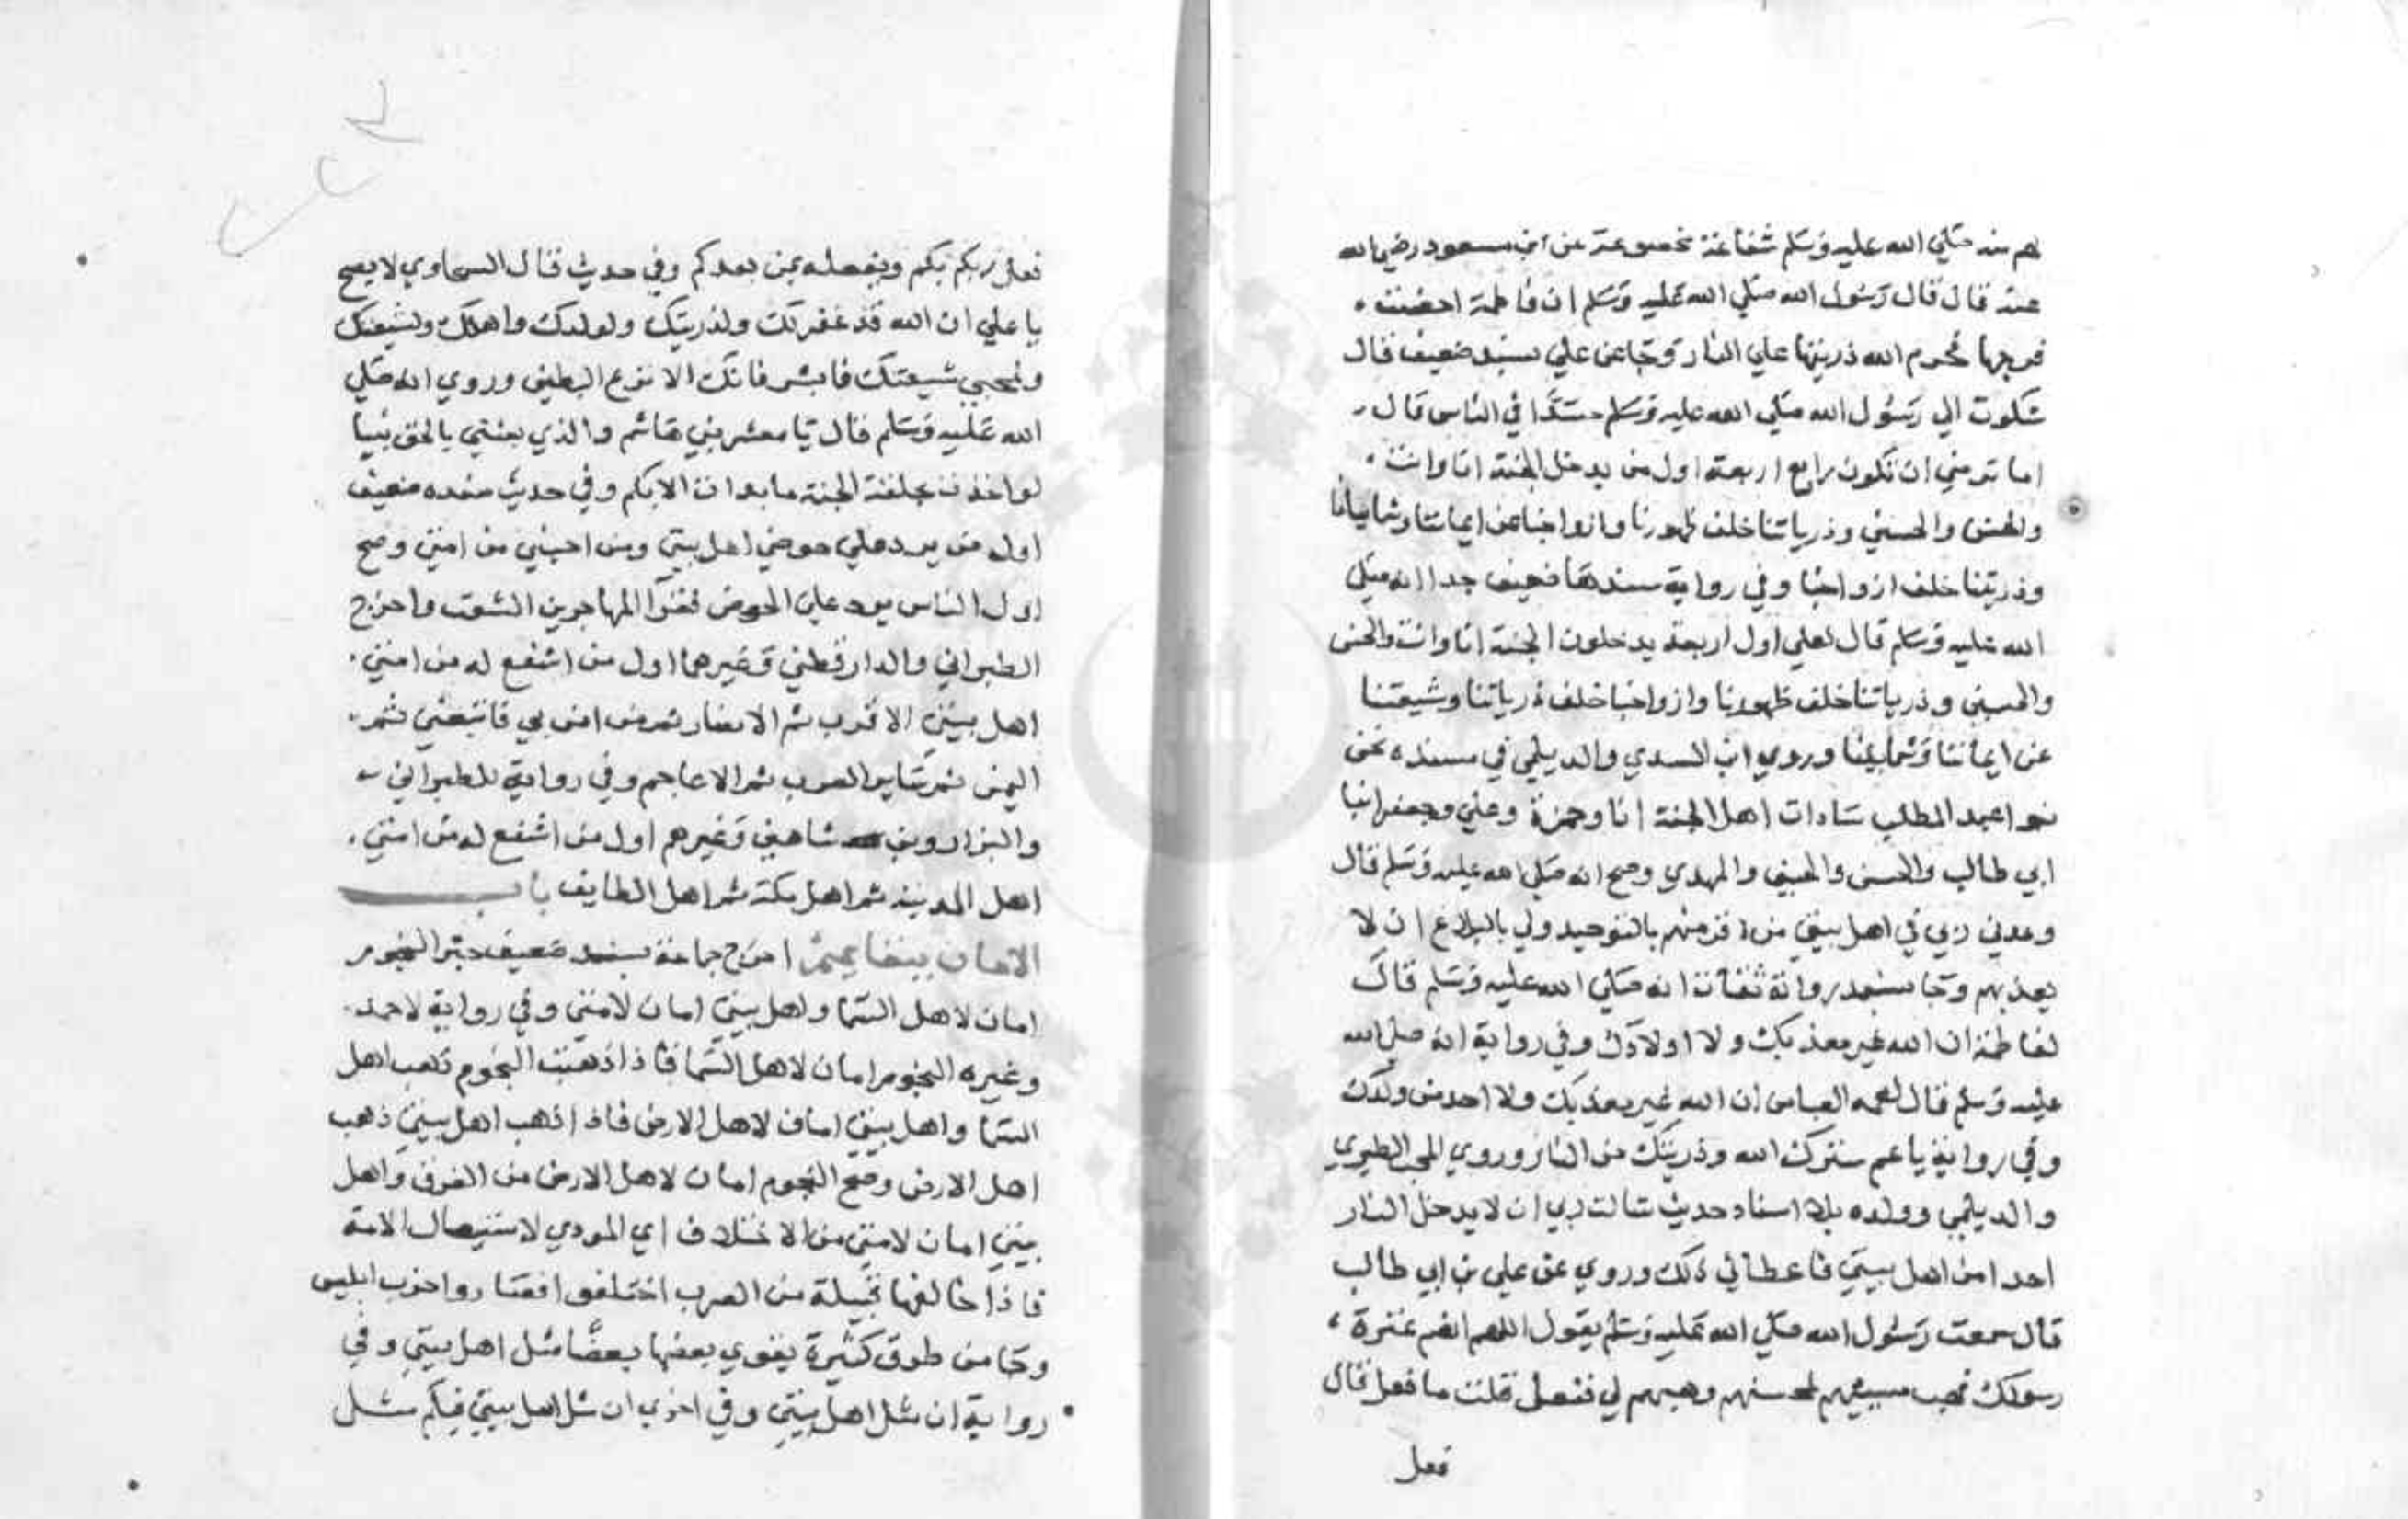 لهم منه صلي الله عليه وسلم شفاعة مخصوصة عن ابن مسعود رضي الله
عنه قال قال رسول الله صلي الله عليه وسلم ان فاطمة احصنت
فرجها فحرم الله ذريتها علي النار وجا عن علي بسند ضعيف قال
شكوت الي رسول الله صلي الله عليه وسلم حسدا في الناس قال
اما ترضي ان تكون رابع اربعة اول من يدخل الجنة انا وانت
والحسن والحسين وذرياتنا خلف ظهورنا وازواجنا عن ايماننا وشمايلنا
وذريتنا خلف ازواجنا وفي رواية سندها ضعيف جدا انه صلي
الله عليه وسلم قال لعلي اول اربعة يدخلون الجنة انا وانت والحسن
والحسين وذرياتنا خلف ظهورنا وازواجنا خلف ذرياتنا وشيعتنا
عن ايماننا وشمايلنا وروي ابن السدي والديلمي في مسنده نحن
بنوا عبد المطلب سادات اهل الجنة انا وحمزة وعلي وجعفر ابنا
ابي طالب والحسن والحسين والمهدي وصح انه صلي الله عليه وسلم قال
وعدني ربي في اهل بيتي من اقر منهم بالتوحيد ولي بالبلاغ ان لا
يعذبهم وجا بسند رواته ثقات انه صلي الله عليه وسلم قال
لفاطمة ان الله غير معذبك ولا اولادك وفي رواية انه صلي الله
عليه وسلم قال لعمه العباس ان الله غير معذبك ولا احد من ولدك
وفي رواية يا عم سترك الله وذريتك من النار وروي المحب الطبري
والديلمي وولده بلا اسناد حديث سالت ربي ان لا يدخل النار
احدا من اهل بيتي فاعطاني ذلك وروي عن علي بن ابي طالب
قال سمعت رسول الله صلي الله عليه وسلم يقول اللهم انهم عترة
رسولك فهب مسيئهم لمحسنهم وهبهم لي ففعل قلت ما فعل قال
فعل
فعل ربكم بكم ويفعله بمن بعدكم وفي حديث قال السخاوي لا يصح
يا علي ان الله قد غفر لك ولذريتك ولولدك واهلك ولشيعتك
ولمحبي شيعتك فابشر فانك الانزع البطين وروي انه صلي
الله عليه وسلم قال يا معشر بني هاشم والذي بعثني بالحق نبيا
لو اخذت بحلقة الجنة ما بدات الا بكم وفي حديث سنده ضعيف
اول من يرد علي حوضي اهل بيتي ومن احبني من امتي وصح
اول الناس يرد علي الحوض فقرا المهاجرين الشعث واخرج
الطبراني والدارقطني وغيرهما اول من اشفع له من امتي
اهل بيتي الاقرب ثم الانصار ثم من امن بي فاتبعني ثم
اليمن ثم ساير العرب ثم الاعاجم وفي رواية للطبراني
والبزار وبن شاهين وغيرهم اول من اشفع له من امتي
اهل المدينة ثم اهل مكة ثم اهل الطايف باب
الامان ببقايهم اخرج جماعة بسند ضعيف خبر النجوم
امان لاهل السما واهل بيتي امان لامتي وفي رواية لاحمد
وغيره النجوم امان لاهل السما فاذا ذهبت النجوم ذهب اهل
السما واهل بيتي امان لاهل الارض فاذا ذهب اهل بيتي ذهب
اهل الارض وصح النجوم امان لاهل الارض من الغرق واهل
بيتي امان لامتي من الاختلاف اي المودي لاستيصال الامة
فاذا خالفها قبيلة من العرب اختلفوا فصاروا حزب ابليس
وجا من طرق كثيرة يقوي بعضها بعضا مثل اهل بيتي وفي
رواية ان مثل اهل بيتي وفي اخري ان مثل اهل بيتي فيكم مثل